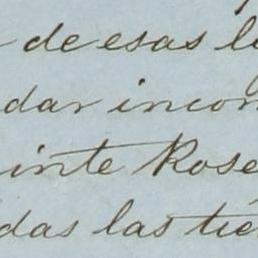 de esas l
dar incon
inte Rose
das las tie